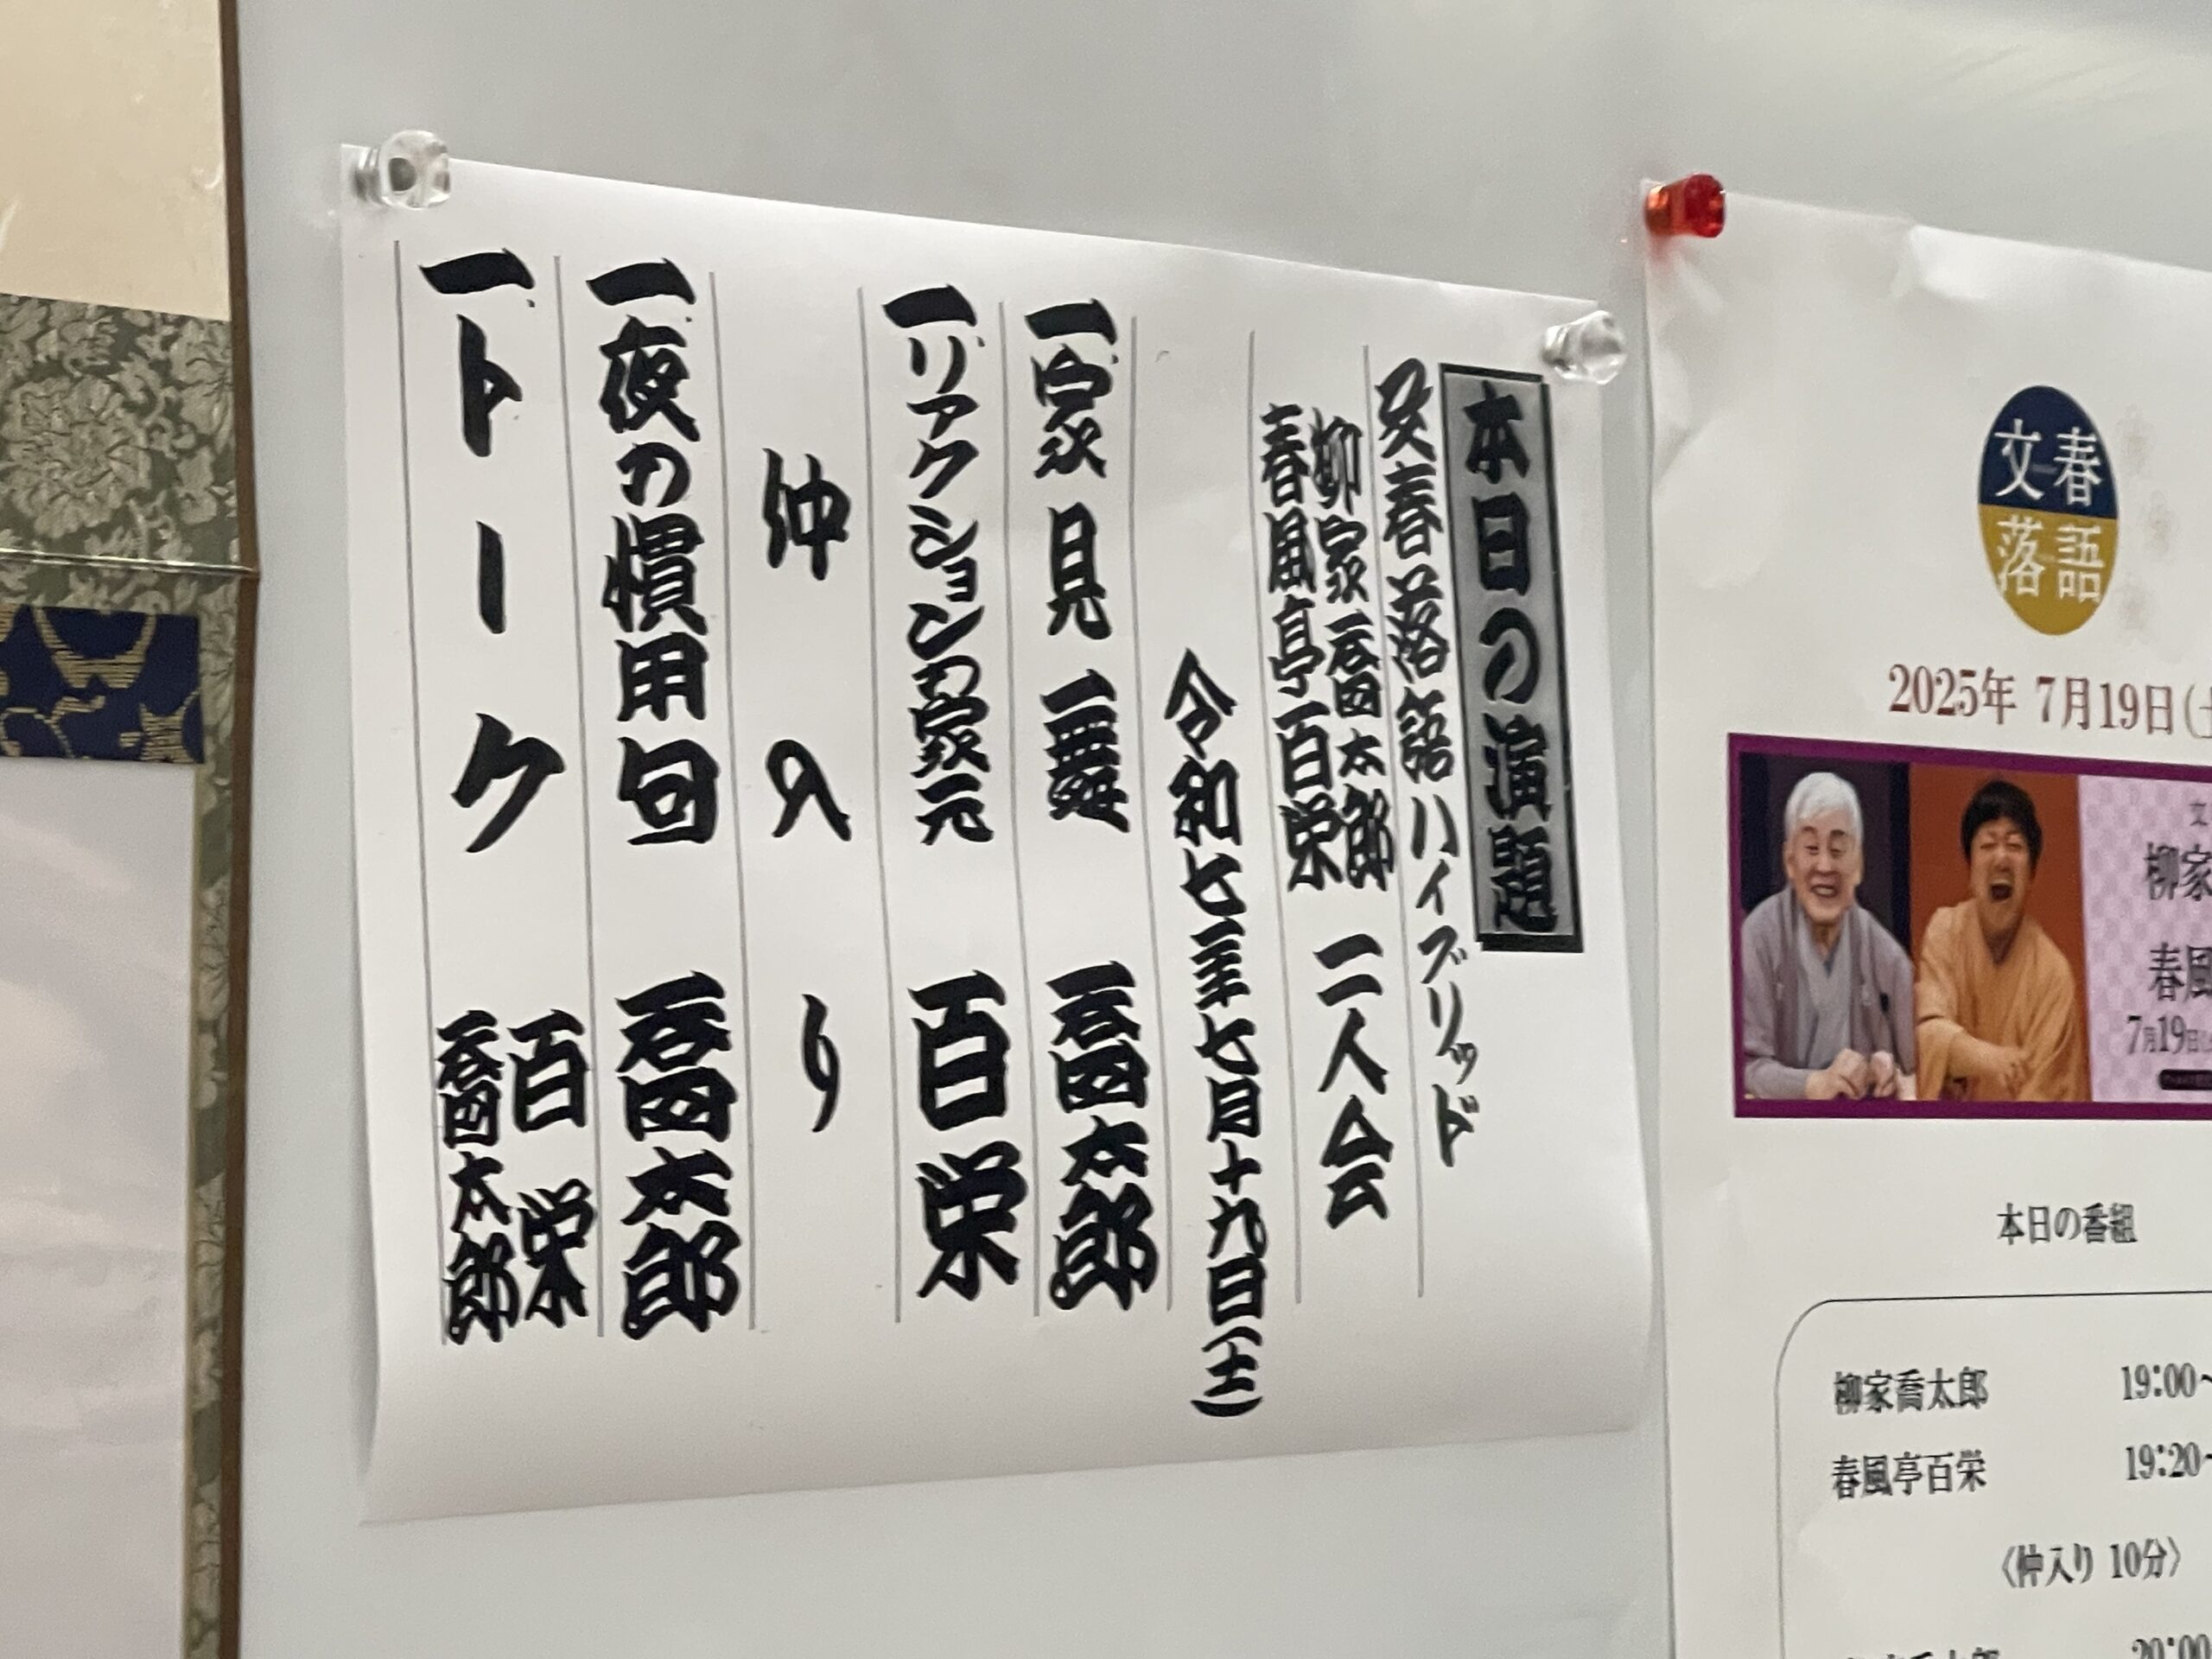 本日の演題
文春落語ハイブリッド
柳家喬太郎
春風亭百栄
二人会
令和七年七月十九日(土)
一、家見舞 喬太郎
一、リアクションの家元 百栄
仲入り
一、夜の慣用句 喬太郎
一、トーク 百栄
喬太郎
文春
落語
2025年 7月19日(土
文
柳家
春風
7月19日
本日の番組
柳家喬太郎 19:00~
春風亭百栄 19:20~
〈仲入り 10分〉
喬太郎 20:00